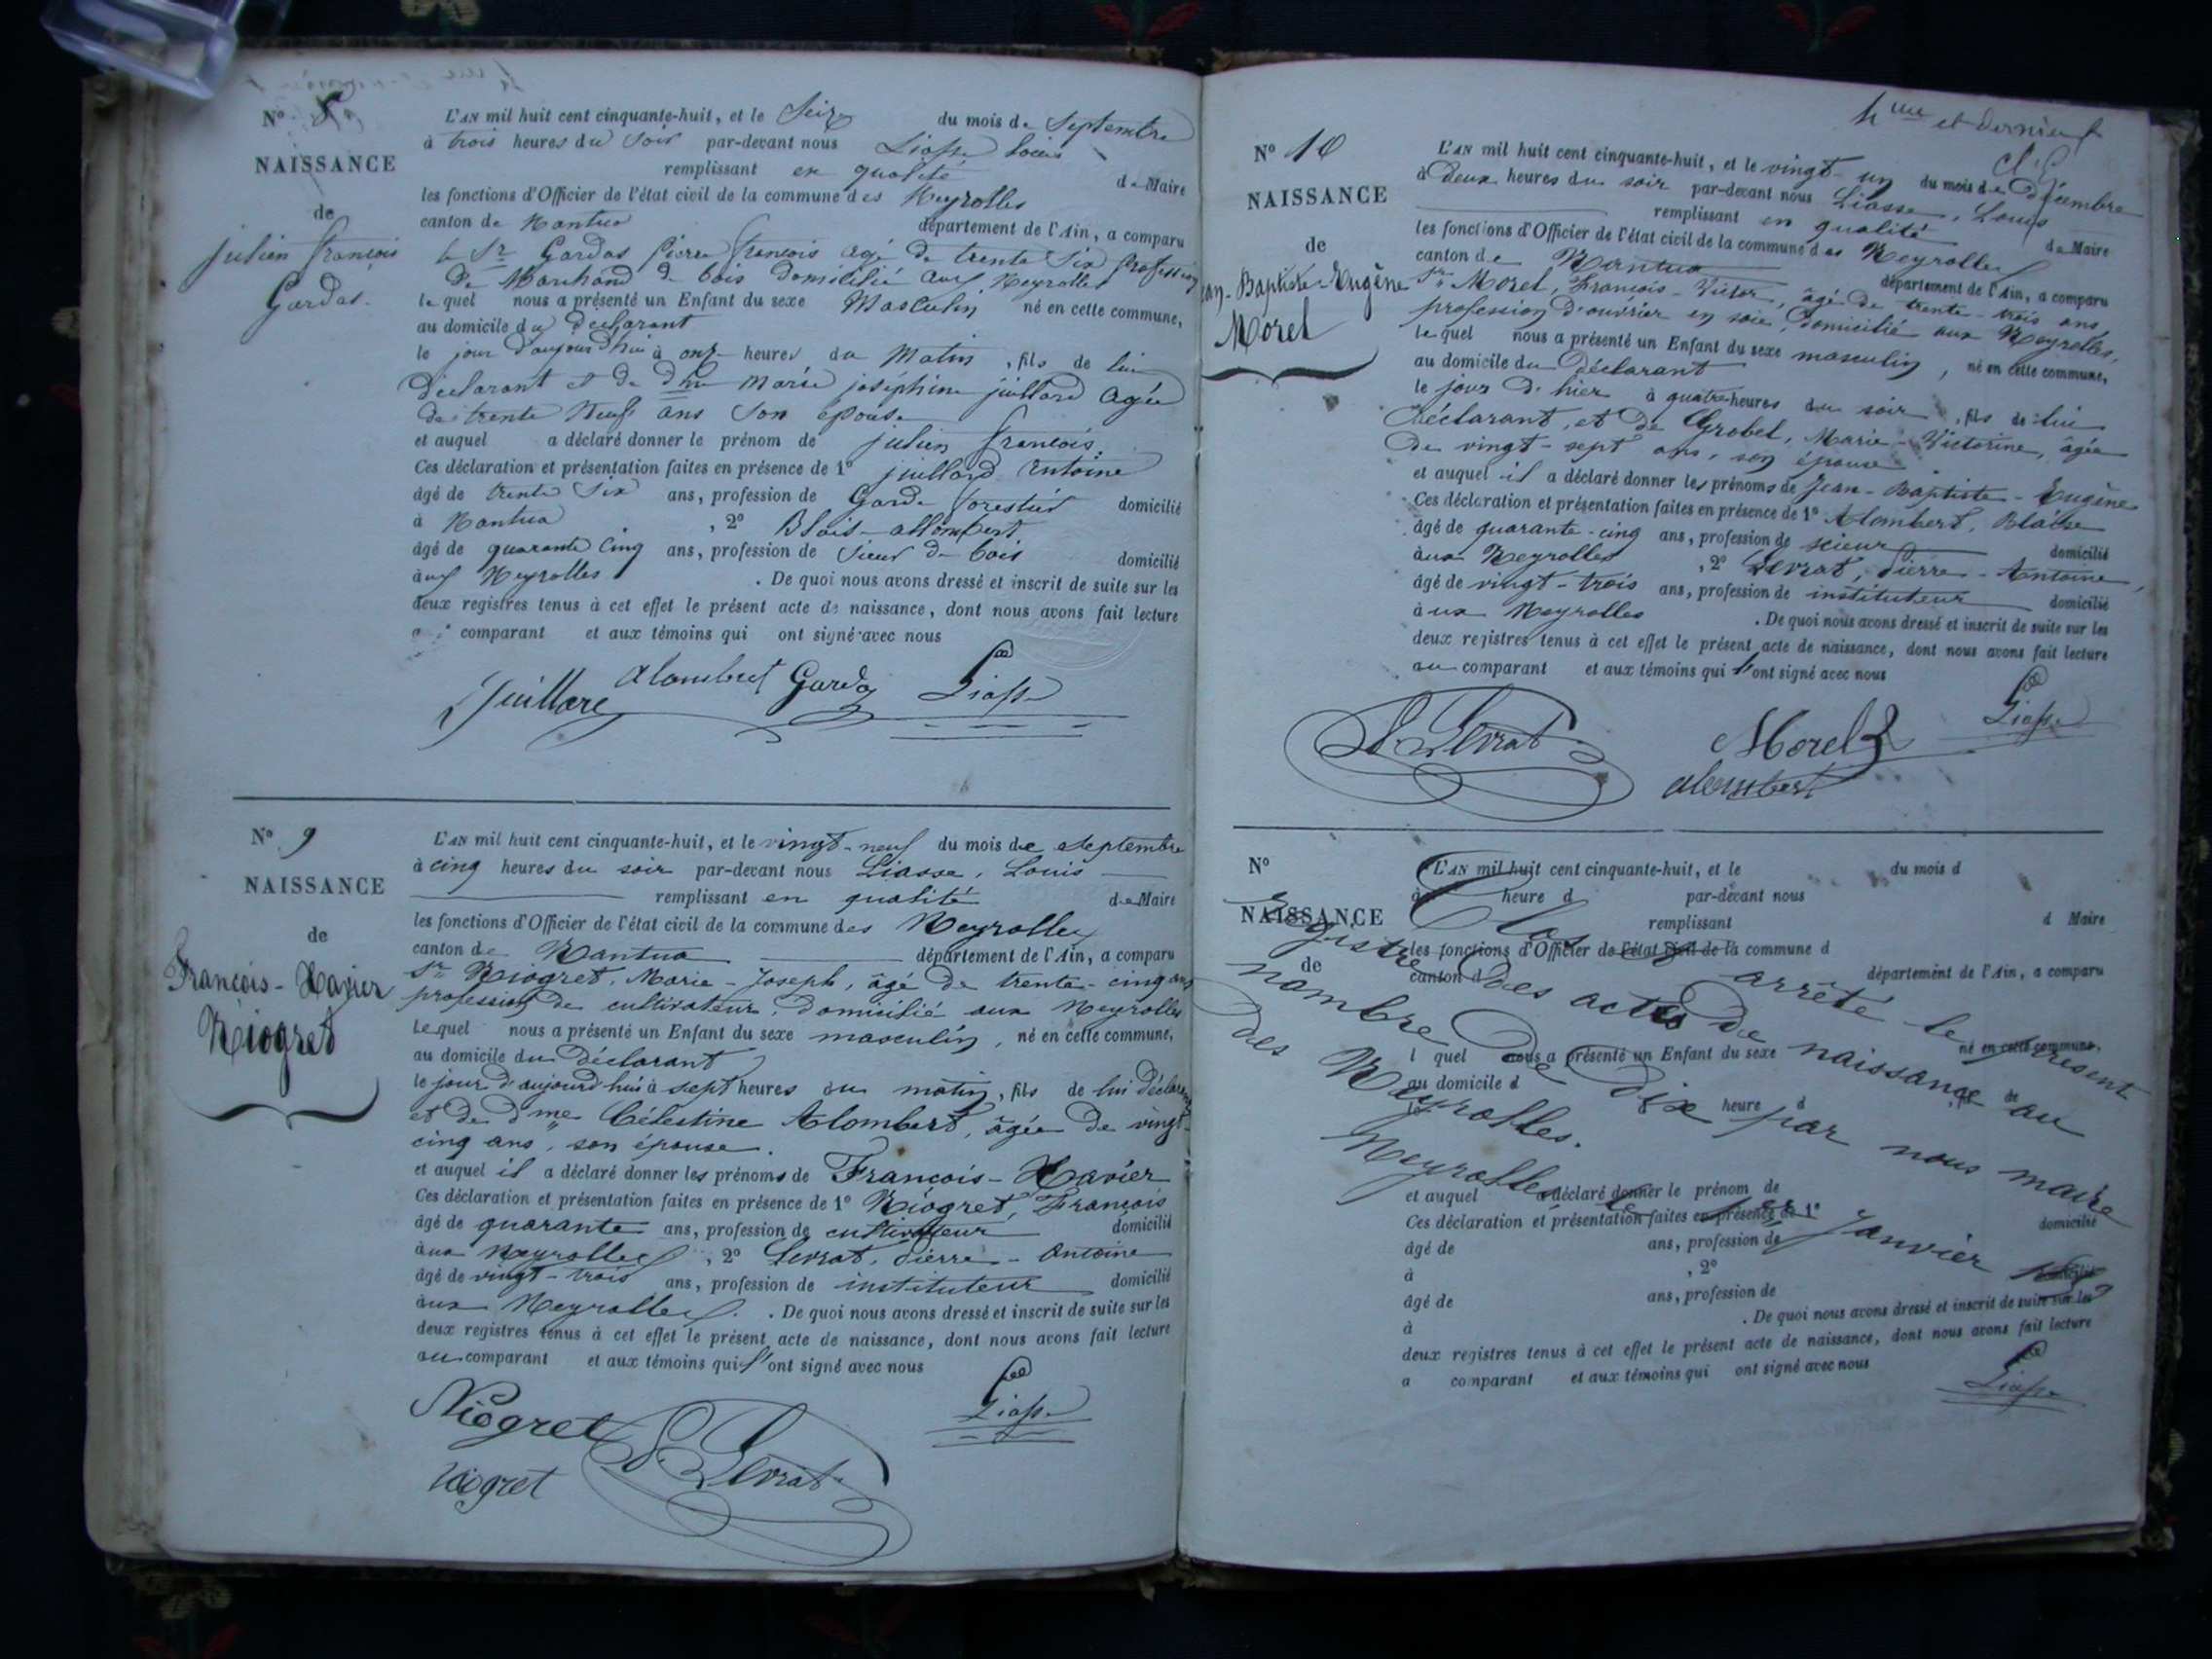 N° 8
NAISSANCE
de
julien françois
Gardas.
L'AN mil huit cent cinquante-huit, et le Seize du mois de Septembre
à trois heures du Soir par-devant nous Liasse Louis
remplissant en qualité de Maire
les fonctions d'Officier de l'état civil de la commune des Neyrolles
canton de Nantua département de l'Ain, a comparu
le Sr Gardas pierre françois agé de trente Six profession
de Marchand de bois domicilié aux Neyrolles
lequel nous a présenté un Enfant du sexe Masculin né en cette commune,
au domicile du declarant
le jour d'aujourd'hui à onze heures du Matin, fils de lui
declarant et de dme marie joséphine juillard Agée
de trente Neuf ans Son épouse
et auquel a déclaré donner le prénom de julien françois.
Ces déclaration et présentation faites en présence de 1° juillard Antoine
âgé de trente Six ans, profession de Garde forestier domicilié
à Nantua , 2° Blais allombert
âgé de quarante Cinq ans, profession de Sieur de bois domicilié
aux Neyrolles . De quoi nous avons dressé et inscrit de suite sur les
deux registres tenus à cet effet le présent acte de naissance, dont nous avons fait lecture
a comparant et aux témoins qui ont signé avec nous
Juillard Alombert Gardas Liasse
N° 9
NAISSANCE
de
François-Xavier
Niogret
L'AN mil huit cent cinquante-huit, et le vingt-neuf du mois de Septembre
à cinq heures du soir par-devant nous Liasse, Louis
remplissant en qualité de Maire
les fonctions d'Officier de l'état civil de la commune des Neyrolles
canton de Nantua département de l'Ain, a comparu
Sr Niogret, Marie-Joseph, âgé de trente-cinq ans
profession de cultivateur, domicilié aux Neyrolles
Lequel nous a présenté un Enfant du sexe masculin, né en cette commune,
au domicile du déclarant
le jour d'aujourd'hui à sept heures du matin, fils de lui déclarant
et de dme Célestine Alombert, âgée de vingt-
cinq ans, son épouse.
et auquel il a déclaré donner les prénoms de François-Xavier
Ces déclaration et présentation faites en présence de 1° Niogret, François
âgé de quarante ans, profession de cultivateur domicilié
aux Neyrolles , 2° Levrat, Pierre-Antoine
âgé de vingt-trois ans, profession de instituteur domicilié
aux Neyrolles. . De quoi nous avons dressé et inscrit de suite sur les
deux registres tenus à cet effet le présent acte de naissance, dont nous avons fait lecture
au comparant et aux témoins qui l'ont signé avec nous
Niogret Levrat Liasse
Niogret
4me et dernier f
N° 10
NAISSANCE
de
Jean-Baptiste-Eugène
Morel
L'AN mil huit cent cinquante-huit, et le vingt-un du mois de Décembre
à Deux heures du soir par-devant nous Liasse, Louis
remplissant en qualité de Maire
les fonctions d'Officier de l'état civil de la commune des Neyrolles
canton de Nantua département de l'Ain, a comparu
Sr Morel, François-Victor, âgé de trente-trois ans,
profession d'ouvrier en soie, domicilié aux Neyrolles,
lequel nous a présenté un Enfant du sexe masculin, né en cette commune,
au domicile du Déclarant
le jour d'hier à quatre heures du soir, fils de lui
Déclarant, et de Grobel, Marie-Victorine, âgée
de vingt-sept ans, son épouse
et auquel il a déclaré donner les prénoms de Jean-Baptiste-Eugène
Ces déclaration et présentation faites en présence de 1° Alombert, Blaise
âgé de quarante-cinq ans, profession de scieur domicilié
aux Neyrolles , 2° Levrat, Pierre-Antoine,
âgé de vingt-trois ans, profession de instituteur domicilié
aux Neyrolles . De quoi nous avons dressé et inscrit de suite sur les
deux registres tenus à cet effet le présent acte de naissance, dont nous avons fait lecture
au comparant et aux témoins qui l'ont signé avec nous
Levrat Morel Liasse
alombert
N°
NAISSANCE
de
L'AN mil huit cent cinquante-huit, et le du mois d
à heure d par-devant nous
remplissant d Maire
les fonctions d'Officier de l'état civil de la commune d
canton d département de l'Ain, a comparu
l quel nous a présenté un Enfant du sexe né en cette commune,
au domicile d
heure d de
et auquel a déclaré donner le prénom de
Ces déclaration et présentation faites en présence de 1°
âgé de ans, profession de domicilié
à , 2°
âgé de ans, profession de domicilié
à . De quoi nous avons dressé et inscrit de suite sur les
deux registres tenus à cet effet le présent acte de naissance, dont nous avons fait lecture
a comparant et aux témoins qui ont signé avec nous
Clos et arrêté le présent
Registre des actes de naissance au
nombre de Dix par nous maire
des Neyrolles.
Neyrolles le 1er Janvier 1859
Liasse